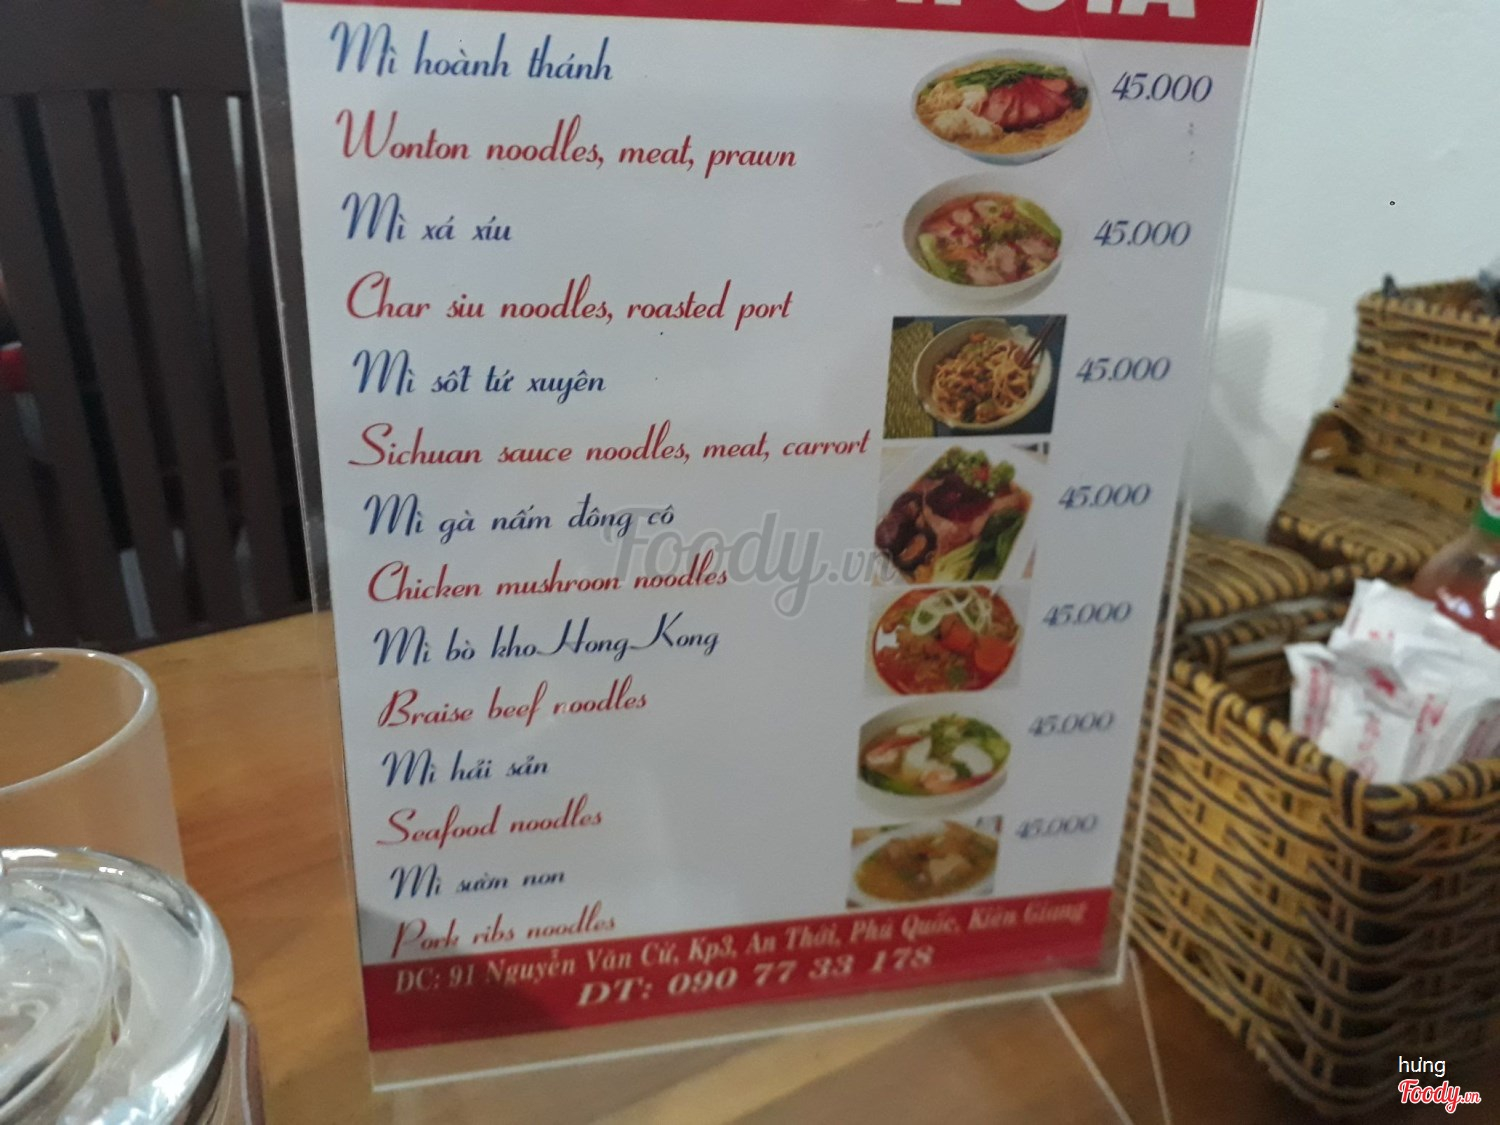 Mì hoành thánh 45.000
Wonton noodles, meat, prawn
Mì xá xíu 45.000
Char siu noodles, roasted port
Mì sốt tứ xuyên 45.000
Sichuan sauce noodles, meat, carrort
Mì gà nấm đông cô 45.000
Chicken mushroon noodles
Mì bò kho Hong Kong 45.000
Braise beef noodles
Mì hải sản 45.000
Seafood noodles
Mì sườn non 45.000
Pork ribs noodles
ĐC: 91 Nguyễn Văn Cừ, Kp3, An Thới, Phú Quốc, Kiên Giang
ĐT: 090 77 33 178
Foody.vn
hưng
Foody.vn